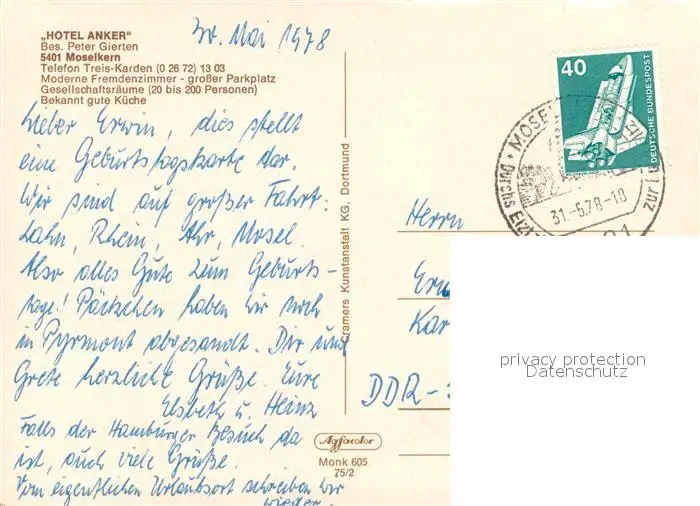 „HOTEL ANKER“
Bes. Peter Gierten
5401 Moselkern
Telefon Treis-Karden (0 26 72) 13 03
Moderne Fremdenzimmer - großer Parkplatz
Gesellschaftsräume (20 bis 200 Personen)
Bekannt gute Küche
30. Mai 1978
Lieber Erwin, dies stellt
eine Geburtstagskarte dar.
Wir sind auf großer Fahrt:
Lahn, Rhein, Ahr, Mosel.
Also alles Gute zum Geburts-
tage! Päckchen haben wir noch
in Pyrmont abgesandt. Dir und
Grete herzliche Grüße. Eure
Elsbeth u. Heinz
Falls der Hamburger Besuch da
ist, auch viele Grüße.
Vom eigentlichen Urlaubsort schreiben wir
wieder.
Cramers Kunstanstalt KG, Dortmund
Agfacolor
Monk 605
75/2
40
DEUTSCHE BUNDESPOST
MOSEL
Durchs
zur
31.-5.78-18
Herrn
Kar
DDR-
privacy protection
Datenschutz